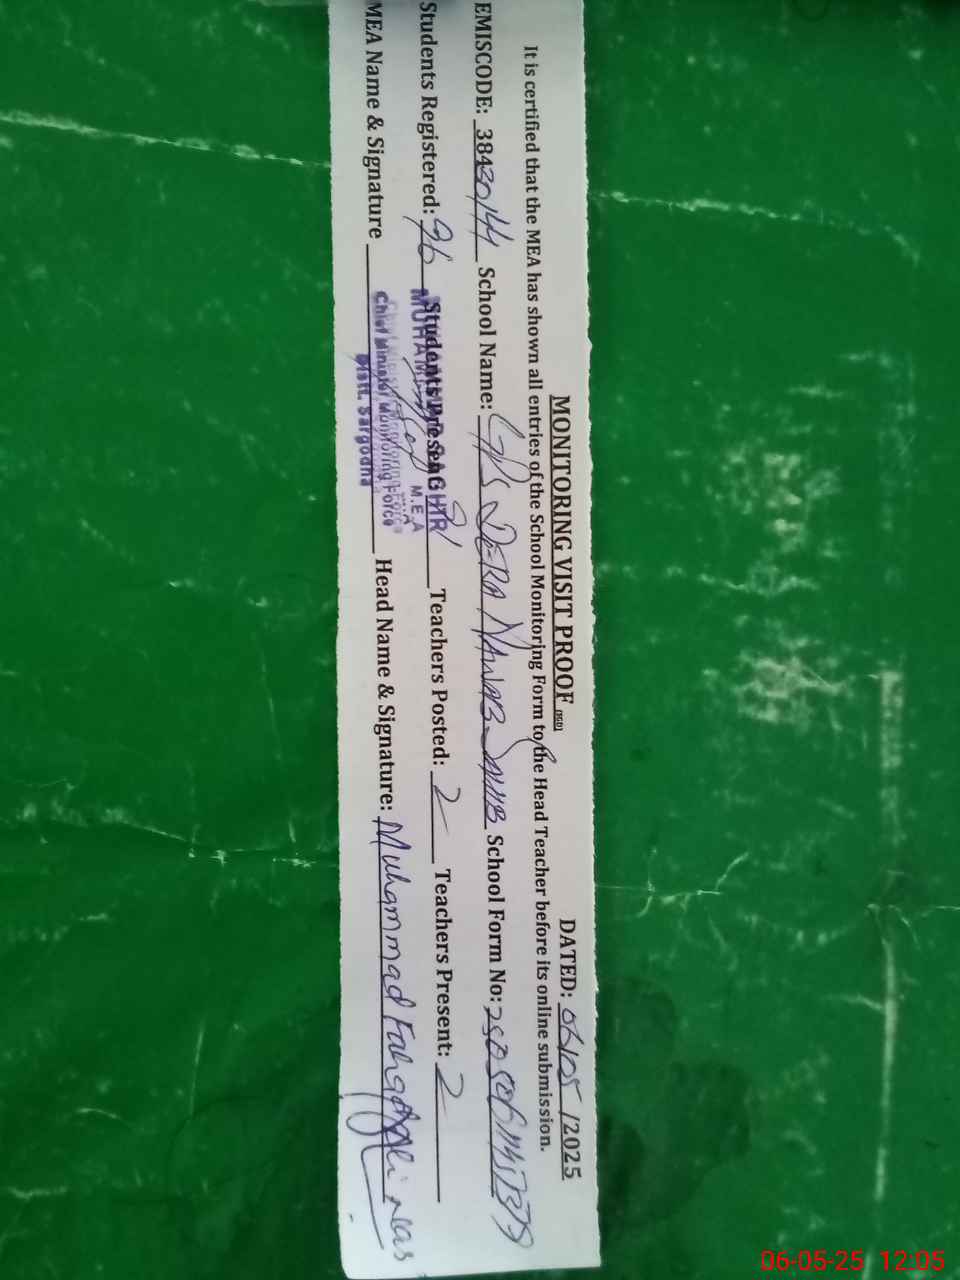 MONITORING VISIT PROOF (SGD) DATED: 06/05 /2025
It is certified that the MEA has shown all entries of the School Monitoring Form to the Head Teacher before its online submission.
EMISCODE: 38430144 School Name: GPS DERA NAWAB SAHIB School Form No:
Students Registered: 96 Students Present Teachers Posted: 2 Teachers Present: 2
MEA Name & Signature Head Name & Signature: Muhammad
M.E.A
Chief Minister Monitoring Force
Distt. Sargodha
06-05-25 12:05